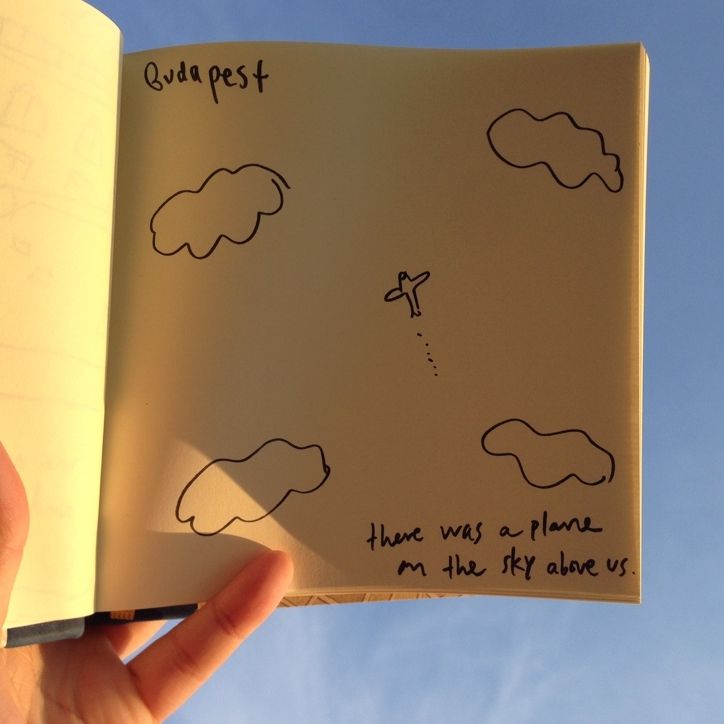 Budapest
there was a plane
on the sky above us.